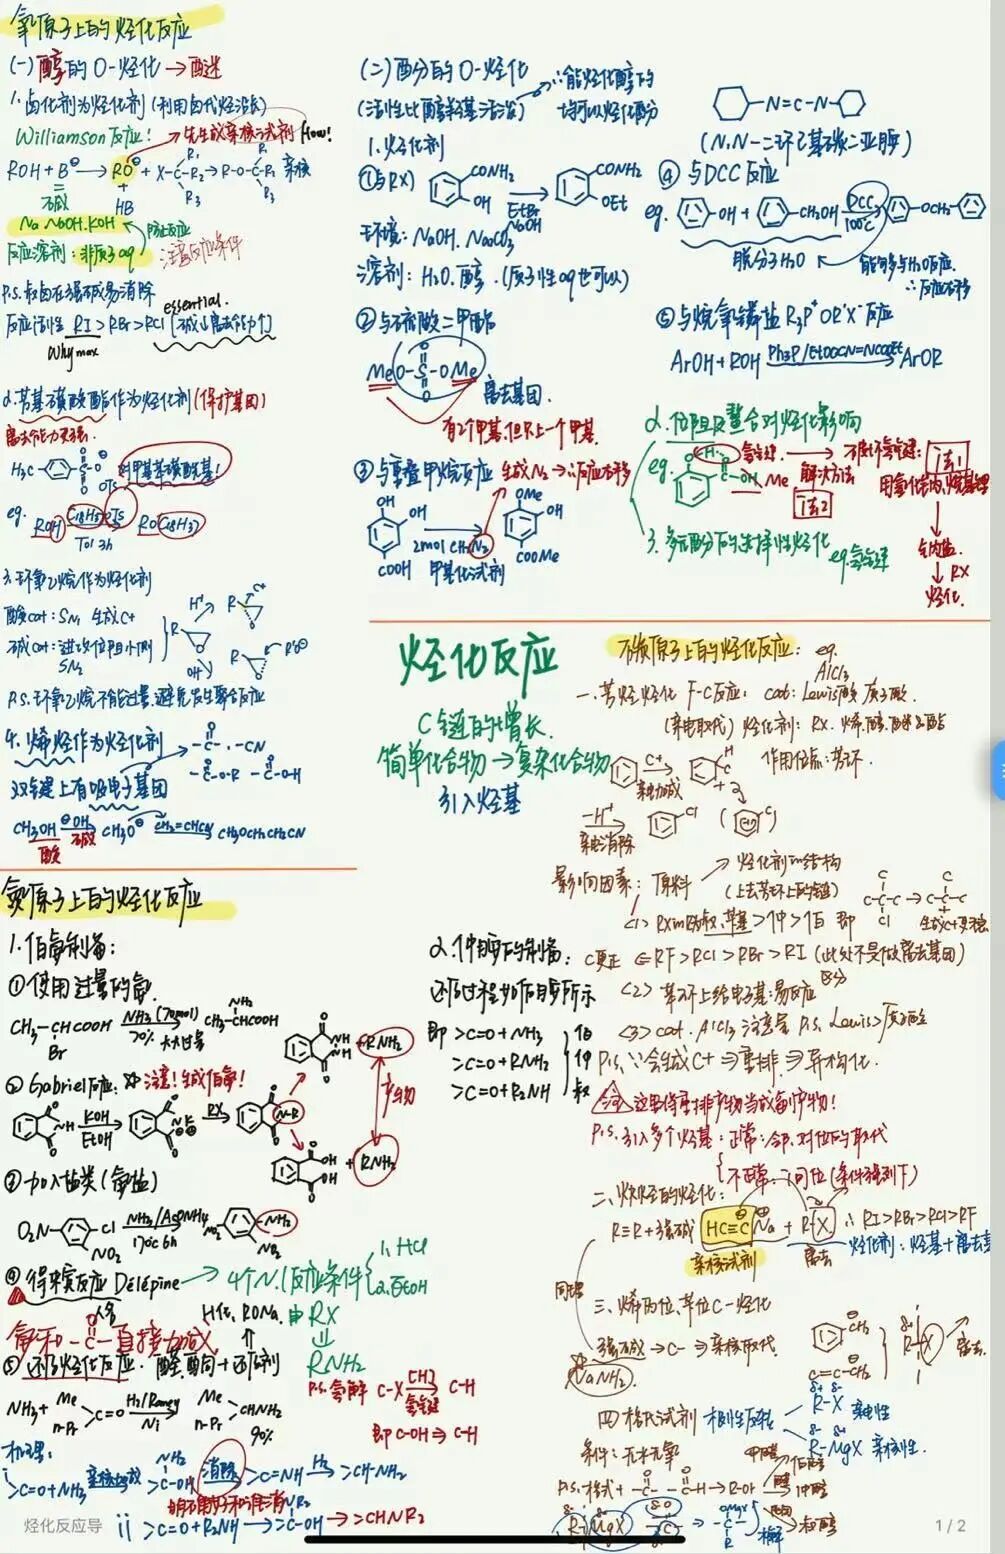 氧原子上的烃化反应
(一)醇的O-烃化→醚
1.卤化剂为烃化剂(利用卤代烃活泼)
Williamson反应! 先生成亲核试剂 How!
ROH+B⊖→RO⊖+X-C-R₂→R-O-C-R₂ 亲核
R₁ R₁
R₃ R₃
强碱 HB
Na NaOH.KOH
反应溶剂:非质子aq 注意反应条件
P.S.叔卤在强碱易消除
essential.
反应活性 RI>RBr>RCl
Why max
2.芳基磺酸酯作为烃化剂(保护基团)
离去能力更强.
H₃C- -S-O⊖
OTs 对甲基苯磺酰基!
eg. ROH C₁₈H₃₇OTs ROC₁₈H₃₇
Tol 3h
3.环氧乙烷作为烃化剂
酸cat:SN₁ 生成C+
碱cat:进攻位阻小侧
SN₂
R H⁺ OH⁻ R C⁺ R R'O⊖
P.S.环氧乙烷不能过量,避免发生聚合反应
4.烯烃作为烃化剂
双键上有吸电子基团
-C- -CN
-C-O-R -C-OH
CH₃OH ⊖OH CH₃O⊖ CH₂=CHCN CH₃OCH₂CH₂CN
强碱
(二)酚的O-烃化
(活性比醇羟基活泼) ∴能烃化醇的
均可以烃化酚
1.烃化剂
①与RX CONH₂ OH EtBr NaOH CONH₂ OEt
环境:NaOH.Na₂CO₃
溶剂:H₂O.醇.(质子性aq也可以)
②与硫酸二甲酯
MeO-S-OMe
离去基团.
有2个甲基,但只上一个甲基.
③与重氮甲烷反应 生成N₂→∴反应不可逆
OH OH COOH 2mol CH₂N₂ OMe OH COOMe
甲基化试剂
-N=C=N-
(N,N-二环己基碳二亚胺)
④与DCC反应
eg. -OH + -CH₂OH DCC 100℃ -OCH₂-
脱分子H₂O 能够多与H₂O反应.
∴反应不可逆
⑤与烷氧鏻盐R₃P⁺OR'X⁻反应
ArOH+ROH Ph₃P/EtOOCN=NCOOEt ArOR
2.位阻及螯合对烃化影响
eg. O H O C-OH Me 氢键. → 不断开氢键: 法1
解决方法
法2
成内盐.
↓RX
烃化.
3.多元酚的选择性烃化 eg氢键
烃化反应
C链的增长.
简单化合物→复杂化合物
引入烃基
碳原子上的烃化反应: eg.
AlCl₃
一.芳烃烃化 F-C反应: cat:Lewis酸 质子酸.
(亲电取代) 烃化剂:RX.烯.醇.醚及酯
C⁺ 亲电加成 H C 作用位点:苯环.
-H⁺
影响因素:原料 → 烃化剂的结构
(上去苯环上的链)
C更正 ⇐RF>RCl>RBr>RI (此处不是做离去基团)
<2> 苯环上给电子基:易反应
<3> cat. AlCl₃ 注意量 P.S. Lewis>质子酸
P.S. ∵会生成C+⇒重排⇒异构化.
这里将重排产物当成副产物!
P.S.引入多个烃基:正常:邻.对位的取代
不正常→间位(条件强烈下)
二.炔烃的烃化:
R≡R+强碱 HC≡C⊖Na + R-X ∴RI>RBr>RCl>RF
亲核试剂 离去 烃化剂:烃基+离去基
同理
三.烯丙位.苄位C-烃化
强碱→C-⇒亲核取代.
NaNH₂
CH₂ C=C-CH₂ R-X 离去.
四.格氏试剂 极性反转
R-X 亲电性
R-MgX 亲核性.
条件:无水无氧
P.S.格式+ -C- -C-H→R-OH 甲醛 伯醇
醛 仲醇
酮 叔醇
R-MgX -C- → -C- OMgX R 水解
氮原子上的烃化反应
1.伯胺制备:
①使用过量的氨.
CH₃-CHCOOH Br NH₃(70mol) 70% CH₃-CHCOOH NH₂
大大过量
②Gabriel反应: 注意!生成伯胺!
NH KOH EtOH N⊖K⊕ RX N-R NH NH +RNH₂
OH OH +RNH₂
产物
③加入盐类(氨盐)
O₂N- -Cl NO₂ NH₃/AcONH₄ 170℃ 6h O₂N -NH₂ NO₂
④得来宾反应 Délépine → 4个N.(反应条件 1.HCl
2.EtOH
人名 H化.RONa.由RX
⇓
RNH₂
氨和-C-直接加成
⑤还原烃化反应.醛.酮+还原剂
P.S.氢解 C-X [H] C-H
氢气键
即C-OH⇒C-H
NH₃+ Me n-Pr C=O H₂/Raney Ni Me n-Pr CHNH₂
90%
机理:
i >C=O+NH₃ 亲核加成 >C-OH NH₂ 消除 >C=NH H₂ >CH-NH₂
ii >C=O+R₂NH→>C-OH NR₂→>CHNR₂
2.仲胺的制备:
还原过程如伯胺所示
即 >C=O+NH₃ 伯
>C=O+RNH₂ 仲
>C=O+R₂NH 叔
烃化反应导
1 / 2